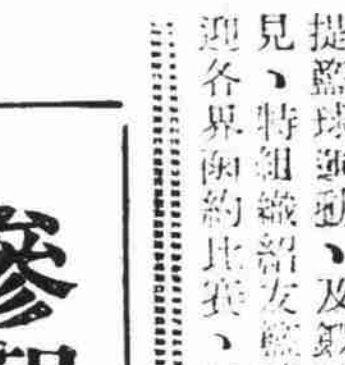 提籃球運動、及鍛
見、特組織紹友籃
迎各界函約比賽、
參